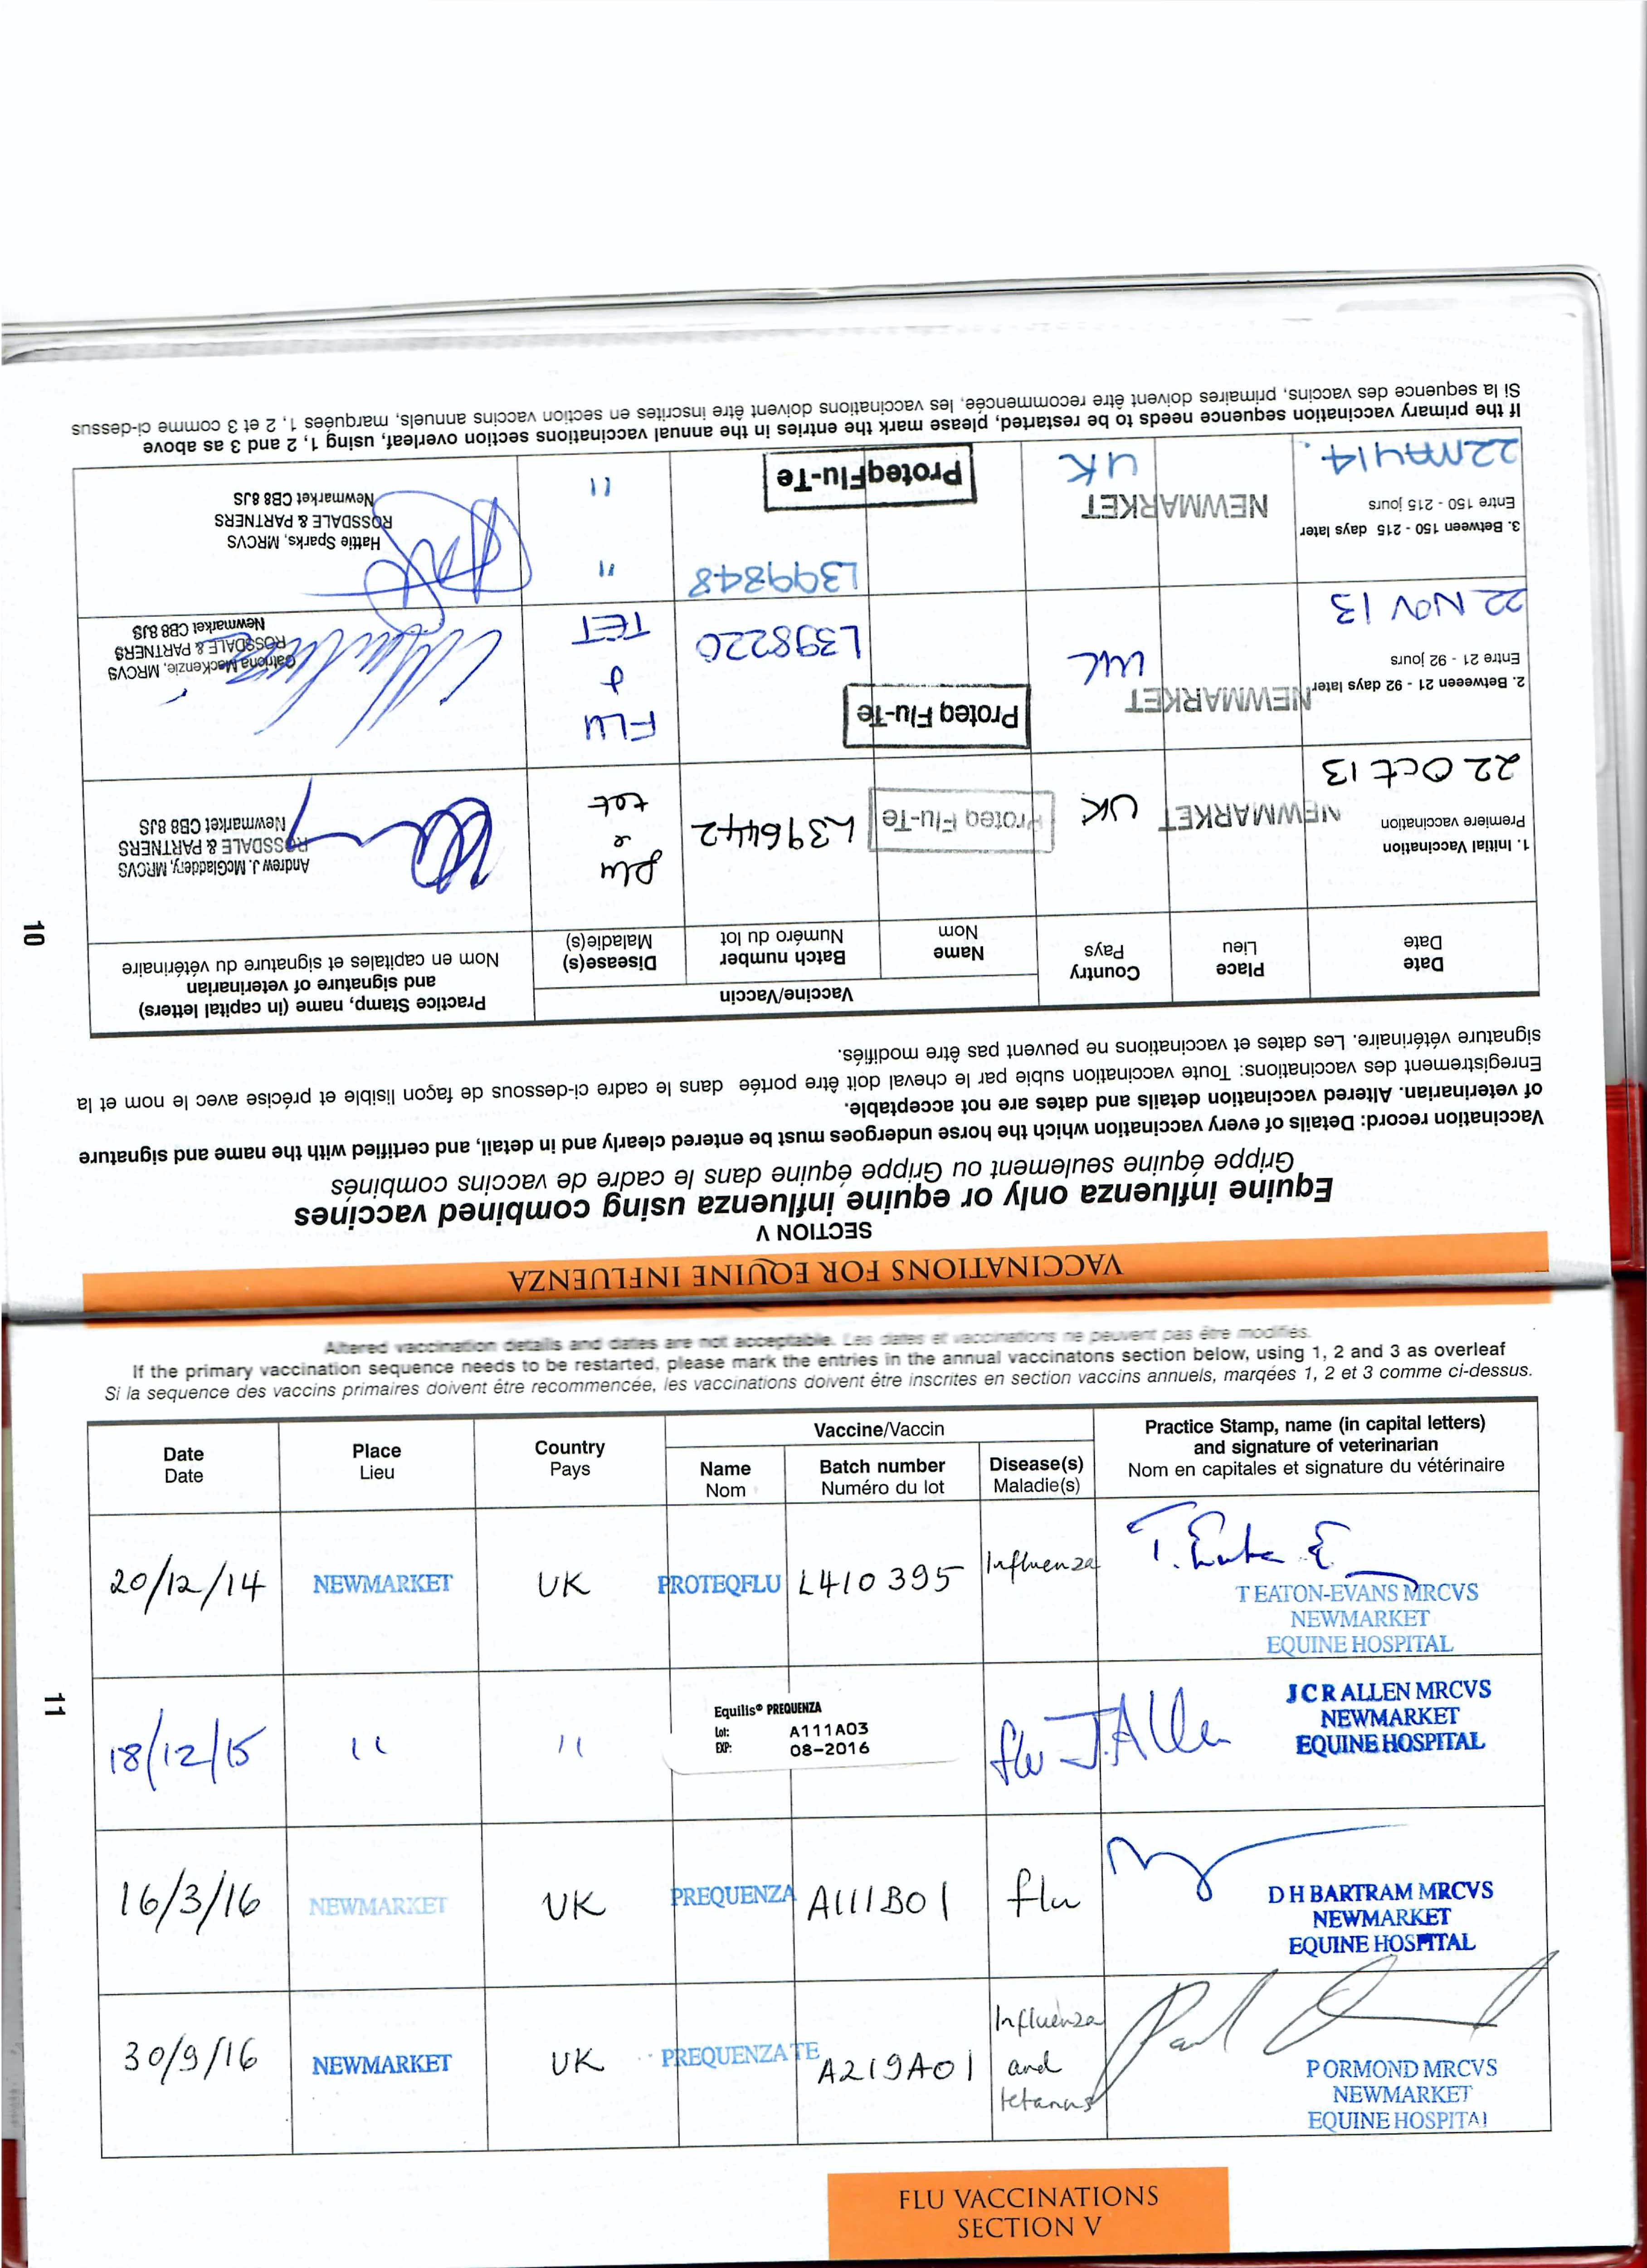 VACCINATIONS FOR EQUINE INFLUENZA
SECTION V
Equine influenza only or equine influenza using combined vaccines
Grippe équine seulement ou Grippe équine dans le cadre de vaccins combinés
Vaccination record: Details of every vaccination which the horse undergoes must be entered clearly and in detail, and certified with the name and signature
of veterinarian. Altered vaccination details and dates are not acceptable.
Enregistrement des vaccinations: Toute vaccination subie par le cheval doit être portée dans le cadre ci-dessous de façon lisible et précise avec le nom et la
signature vétérinaire. Les dates et vaccinations ne peuvent pas être modifiés.
Date
Date
Place
Lieu
Country
Pays
Vaccine/Vaccin
Name
Nom
Batch number
Numéro du lot
Disease(s)
Maladie(s)
Practice Stamp, name (in capital letters)
and signature of veterinarian
Nom en capitales et signature du vétérinaire
1. Initial Vaccination
Premiere vaccination
22 Oct 13
NEWMARKET
UK
Proteq Flu-Te
L396442
flu
&
tet
Andrew J. McGladdery, MRCVS
ROSSDALE & PARTNERS
Newmarket CB8 8JS
2. Betweeen 21 - 92 days later
Entre 21 - 92 jours
22 NOV 13
NEWMARKET
UK
Proteq Flu-Te
L398220
FLU
&
TET
Catriona Mackenzie, MRCVS
ROSSDALE & PARTNERS
Newmarket CB8 8JS
3. Between 150 - 215 days later
Entre 150 - 215 jours
22MAY14.
NEWMARKET
UK
ProteqFlu-Te
L399848
"
"
Hattie Sparks, MRCVS
ROSSDALE & PARTNERS
Newmarket CB8 8JS
If the primary vaccination sequence needs to be restarted, please mark the entries in the annual vaccinations section overleaf, using 1, 2 and 3 as above
Si la sequence des vaccins, primaires doivent être recommencée, les vaccinations doivent être inscrites en section vaccins annuels, marquées 1, 2 et 3 comme ci-dessus
10
Altered vaccination details and dates are not acceptable. Les dates et vaccinations ne peuvent pas être modifiés.
If the primary vaccination sequence needs to be restarted, please mark the entries in the annual vaccinatons section below, using 1, 2 and 3 as overleaf
Si la sequence des vaccins primaires doivent être recommencée, les vaccinations doivent être inscrites en section vaccins annuels, marqées 1, 2 et 3 comme ci-dessus.
Date
Date
Place
Lieu
Country
Pays
Vaccine/Vaccin
Name
Nom
Batch number
Numéro du lot
Disease(s)
Maladie(s)
Practice Stamp, name (in capital letters)
and signature of veterinarian
Nom en capitales et signature du vétérinaire
20/12/14
NEWMARKET
UK
PROTEQFLU
L410395
Influenza
T EATON-EVANS MRCVS
NEWMARKET
EQUINE HOSPITAL
18/12/15
"
"
Equilis® PREQUENZA
Lot: A111A03
EXP: 08-2016
flu
J.Allen
J C R ALLEN MRCVS
NEWMARKET
EQUINE HOSPITAL
16/3/16
NEWMARKET
UK
PREQUENZA
A111B01
flu
D H BARTRAM MRCVS
NEWMARKET
EQUINE HOSPITAL
30/9/16
NEWMARKET
UK
PREQUENZA TE
A219A01
Influenza
and
tetanus
P ORMOND MRCVS
NEWMARKET
EQUINE HOSPITAL
11
FLU VACCINATIONS
SECTION V